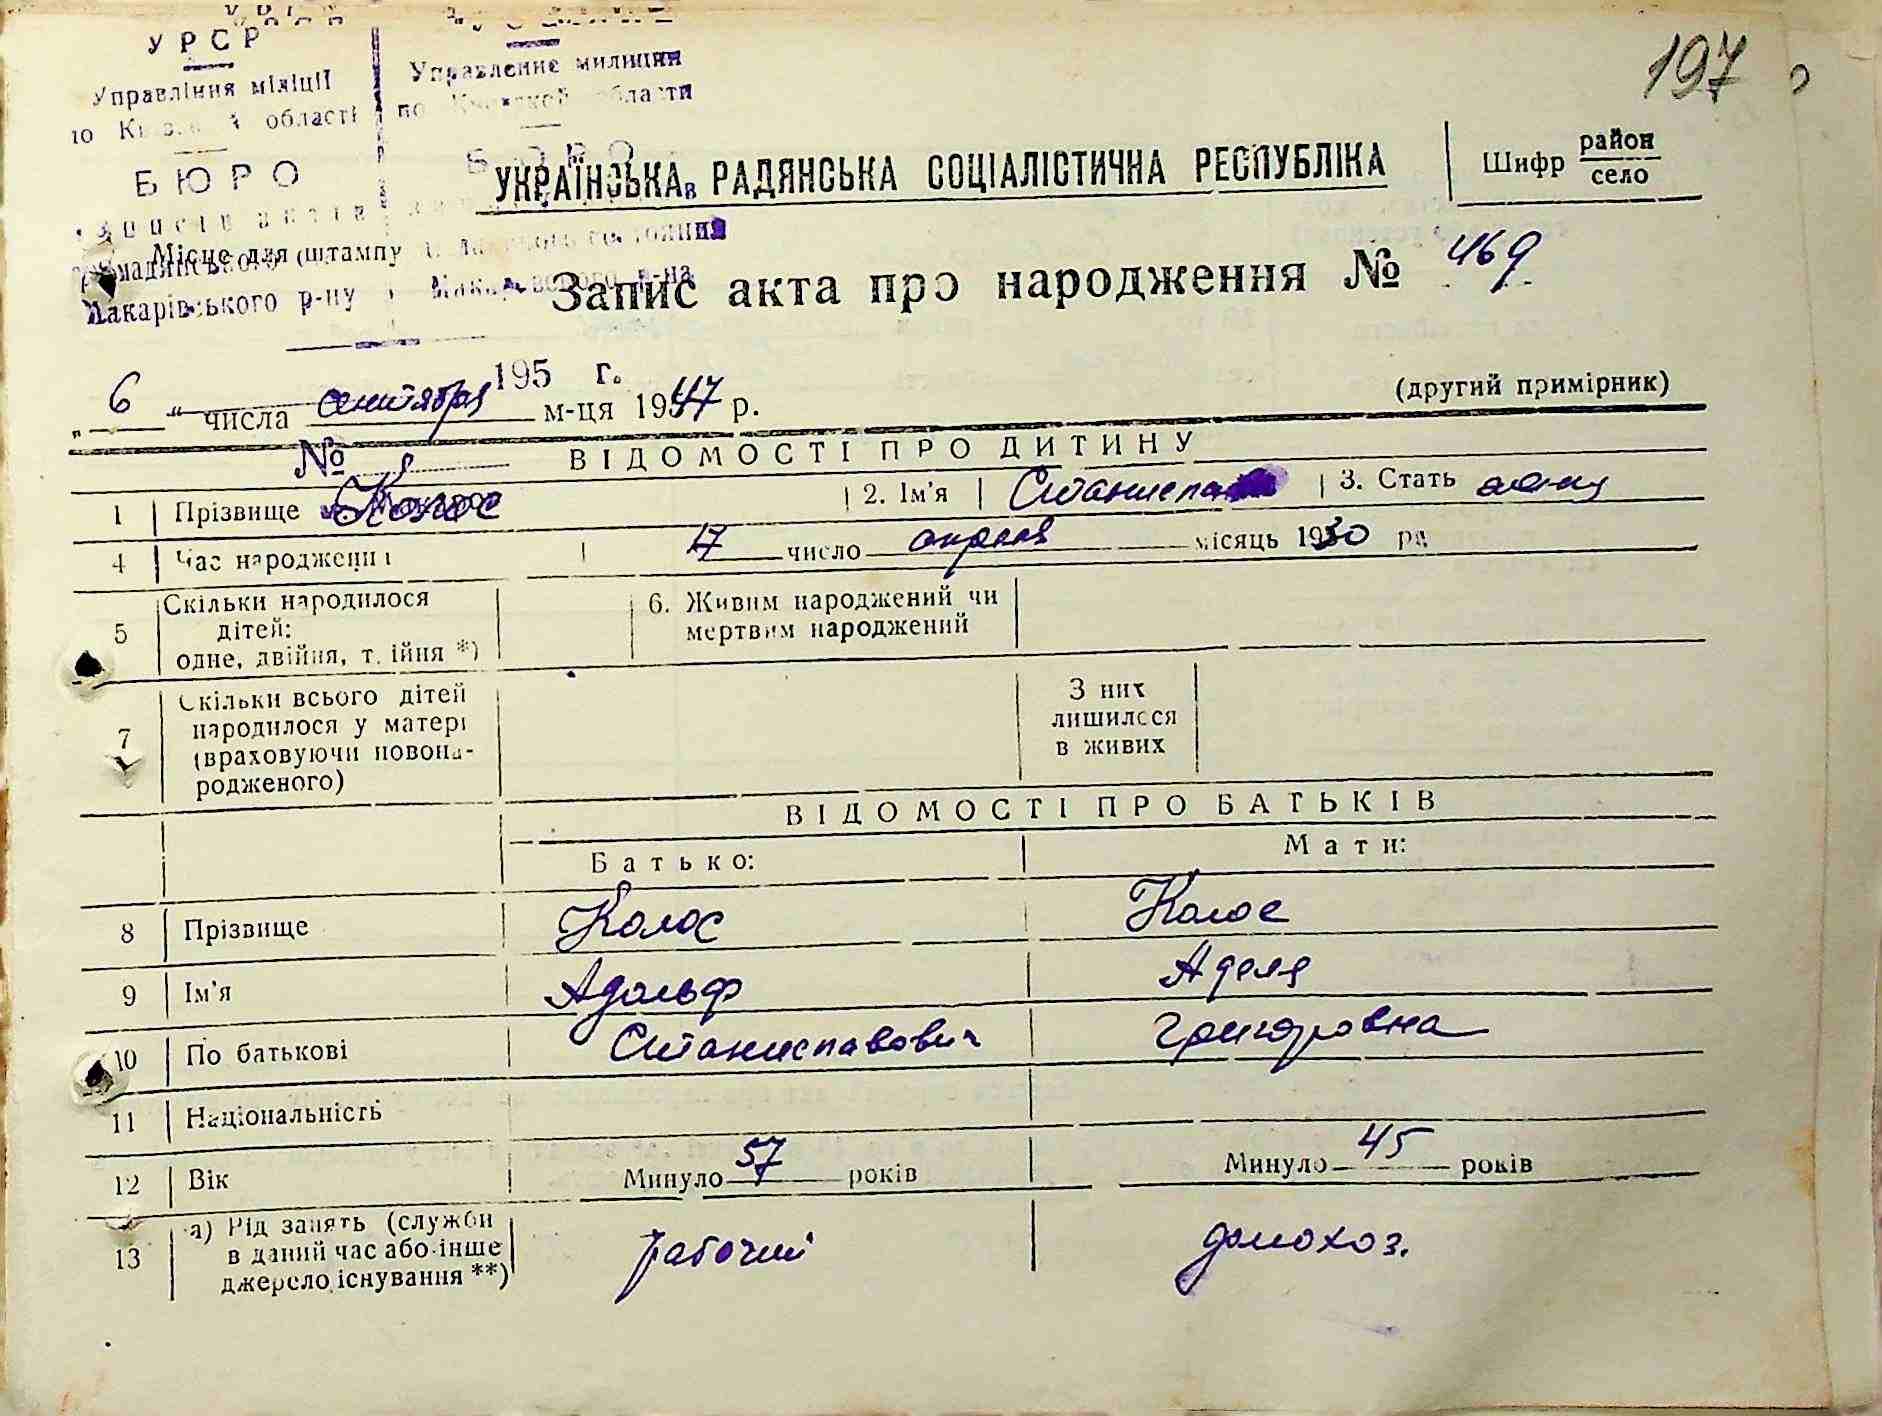 УРСР
Управління міліції
по області
БЮРО
записів актів
громадянського
Макарівського р-ну
Управление милиции
по Киевской области
БЮРО
состояния
Макаровского р-на
195 г.
№
197
УКРАЇНСЬКА РАДЯНСЬКА СОЦІАЛІСТИЧНА РЕСПУБЛІКА
Шифр район
село
Місце для штампу
Запис акта про народження № 469
„ 6 “ числа сентября м-ця 1947 р.
(другий примірник)
ВІДОМОСТІ ПРО ДИТИНУ
1 Прізвище Колос 2. Ім'я 3. Стать
4 Час народження 17 число апреля місяць 1930 р.
5 Скільки народилося
дітей:
одне, двійня, трійня *)
6. Живим народжений чи
мертвим народжений
7 Скільки всього дітей
народилося у матері
(враховуючи новона-
родженого)
З них
лишилося
в живих
ВІДОМОСТІ ПРО БАТЬКІВ
Батько: Мати:
8 Прізвище Колос Колос
9 Ім'я Адольф Аделя
10 По батькові Станиславович Григоровна
11 Національність
12 Вік Минуло 57 років Минуло 45 років
13 а) Рід занять (служби
в даний час або інше
джерело існування **)
рабочий домохоз.